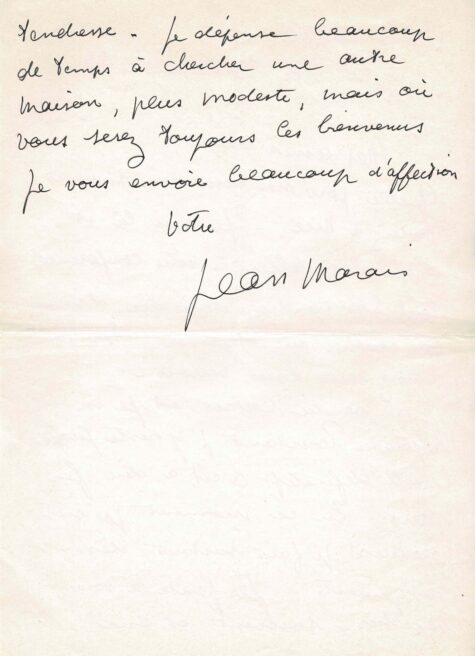 tendresse - Je dépense beaucoup
de temps à chercher une autre
maison, plus modeste, mais où
vous serez toujours les bienvenus
Je vous envoie beaucoup d'affection
Votre
Jean Marais